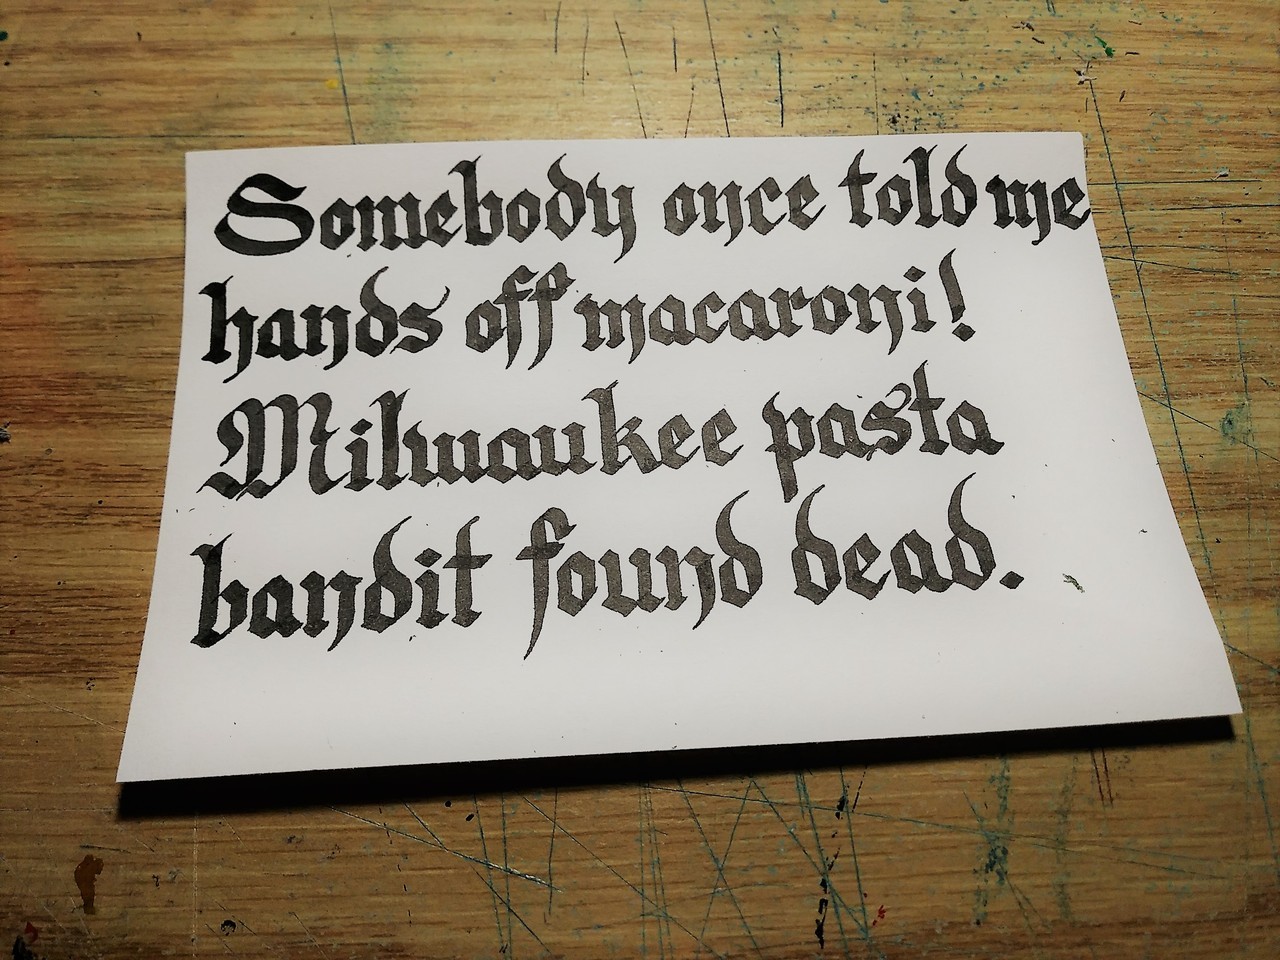 Somebody once told me
hands off macaroni!
Milwaukee pasta
bandit found dead.